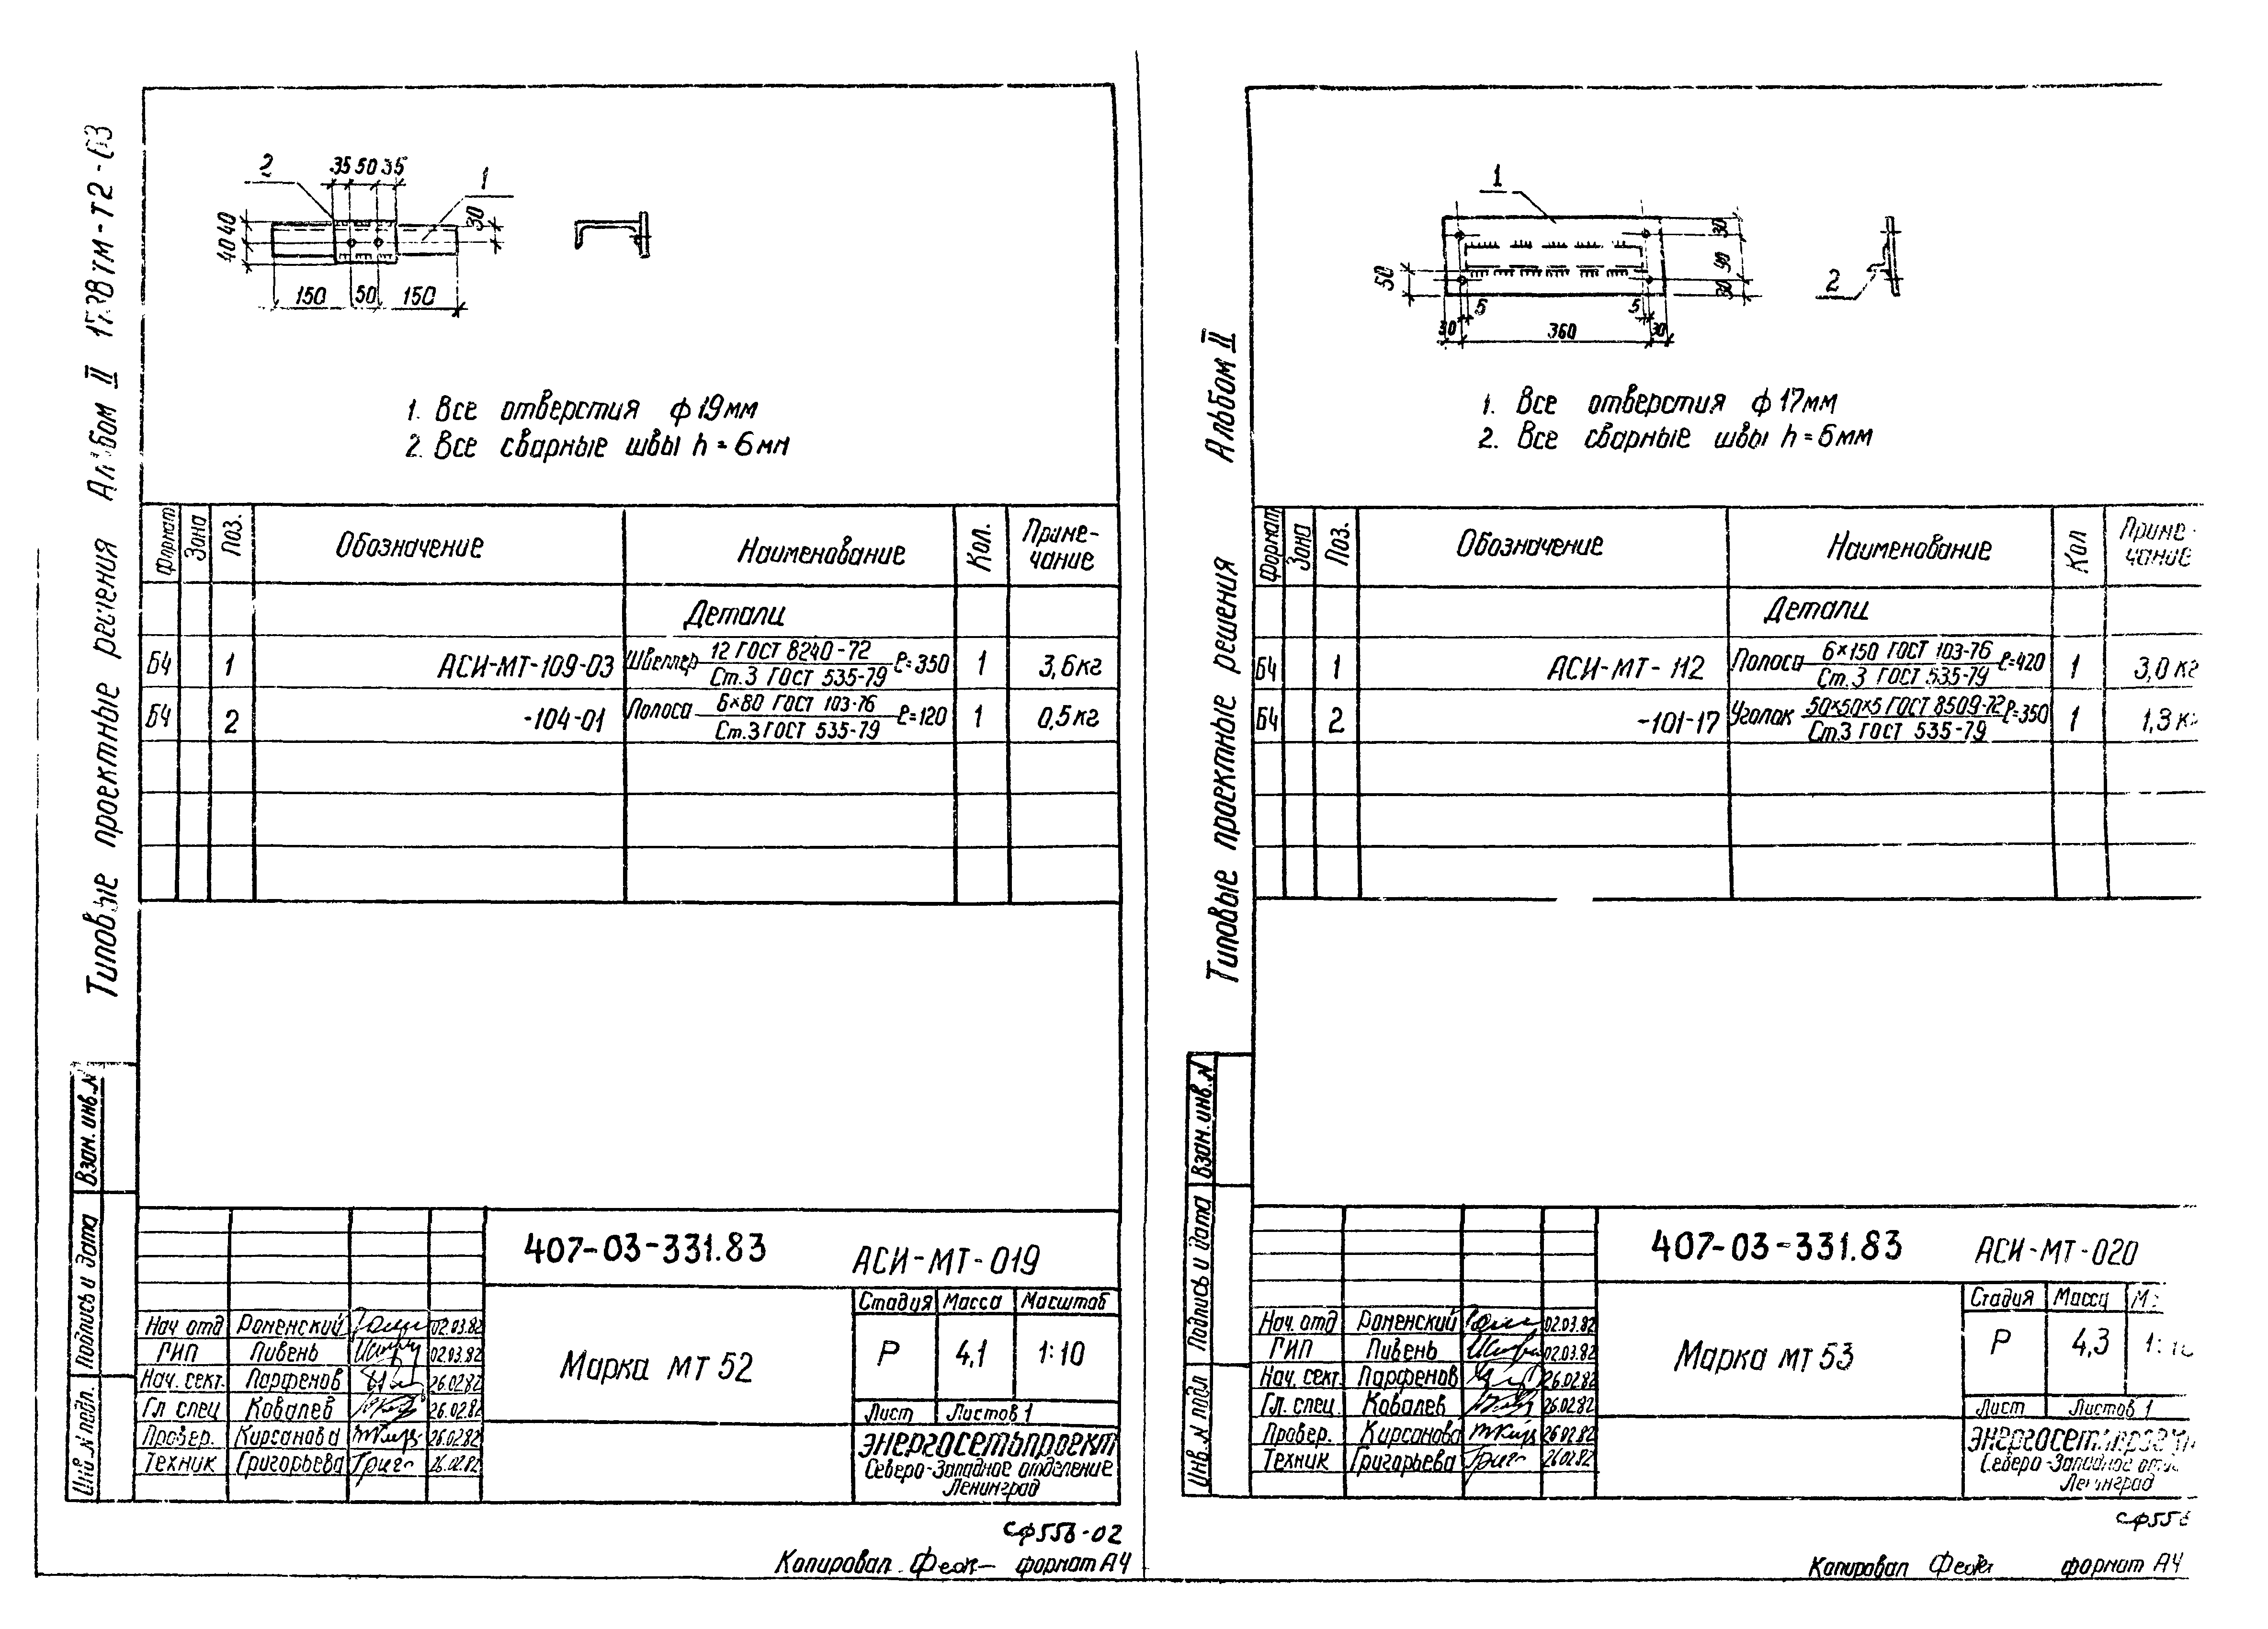 Типовые проектные решения Альбом II 1738тм-т2-03
2
35 50 35
1
40 40
30
150 50 150
1. Все отверстия ф 19мм
2. Все сварные швы h = 6мм
Формат Зона Поз. Обозначение Наименование Кол. Приме-
чание
Детали
БЧ 1 АСИ-МТ-109-03 Швеллер 12 ГОСТ 8240-72 ℓ=350 1 3,6кг
Ст.3 ГОСТ 535-79
БЧ 2 -104-01 Полоса 6×80 ГОСТ 103-76 ℓ=120 1 0,5кг
Ст.3 ГОСТ 535-79
Взам. инв. N
Подпись и дата
Инв. N подл.
407-03-331.83 АСИ-МТ-019
Марка МТ 52
Стадия Масса Масштаб
Р 4,1 1:10
Лист Листов 1
Нач отд Роменский 02.03.82
ГИП Пивень 02.03.82
Нач. сект. Парфенов 26.02.82
Гл спец Ковалев 26.02.82
Провер. Кирсанова 26.02.82
Техник Григорьева 26.02.82
Энергосетьпроект
Северо-Западное отделение
Ленинград
СФ556-02
Копировал формат А4
Типовые проектные решения Альбом II
1
50
30
90
30
2
5 5
30 360 30
1. Все отверстия ф 17мм
2. Все сварные швы h = 6мм
Формат Зона Поз. Обозначение Наименование Кол Приме-
чание
Детали
БЧ 1 АСИ-МТ-112 Полоса 6×150 ГОСТ 103-76 ℓ=420 1 3,0 кг
Ст.3 ГОСТ 535-79
БЧ 2 -101-17 Уголок 50×50×5 ГОСТ 8509-72 ℓ=350 1 1,3 кг
Ст.3 ГОСТ 535-79
Взам. инв. N
Подпись и дата
Инв. N подл
407-03-331.83 АСИ-МТ-020
Марка МТ 53
Стадия Масса М
Р 4,3 1:10
Лист Листов 1
Нач. отд Роменский 02.03.82
ГИП Пивень 02.03.82
Нач. сект. Парфенов 26.02.82
Гл. спец. Ковалев 26.02.82
Провер. Кирсанова 26.02.82
Техник Григорьева 26.02.82
Энергосетьпроект
Северо-Западное
Ленинград
СФ556
Копировал формат А4